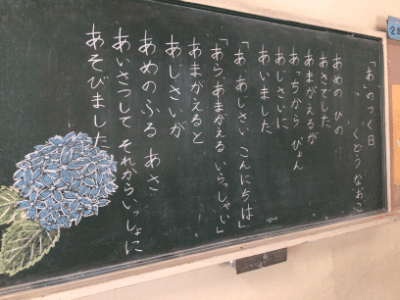 「あいのつく日」
くどうなおこ
あめの ひの
あさでした
あまがえるが
あっちから ぴょん
あじさいに
あいました
「あ、あじさい こんにちは」
「あら、あまがえる いらっしゃい」
あまがえると
あじさいが
あめのふる あさ
あいさつして それからいっしょに
あそびました